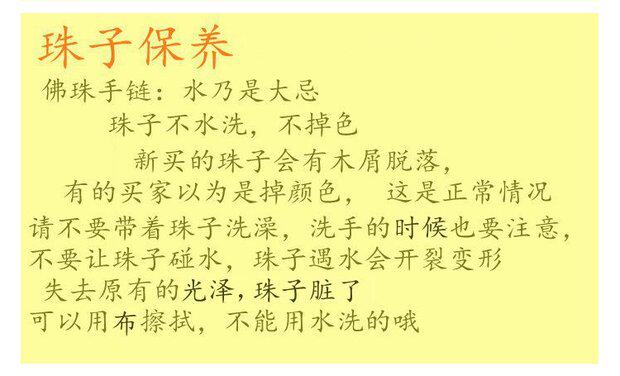 珠子保养
佛珠手链：水乃是大忌
珠子不水洗，不掉色
新买的珠子会有木屑脱落，
有的买家以为是掉颜色， 这是正常情况
请不要带着珠子洗澡，洗手的时候也要注意，
不要让珠子碰水，珠子遇水会开裂变形
失去原有的光泽，珠子脏了
可以用布擦拭，不能用水洗的哦